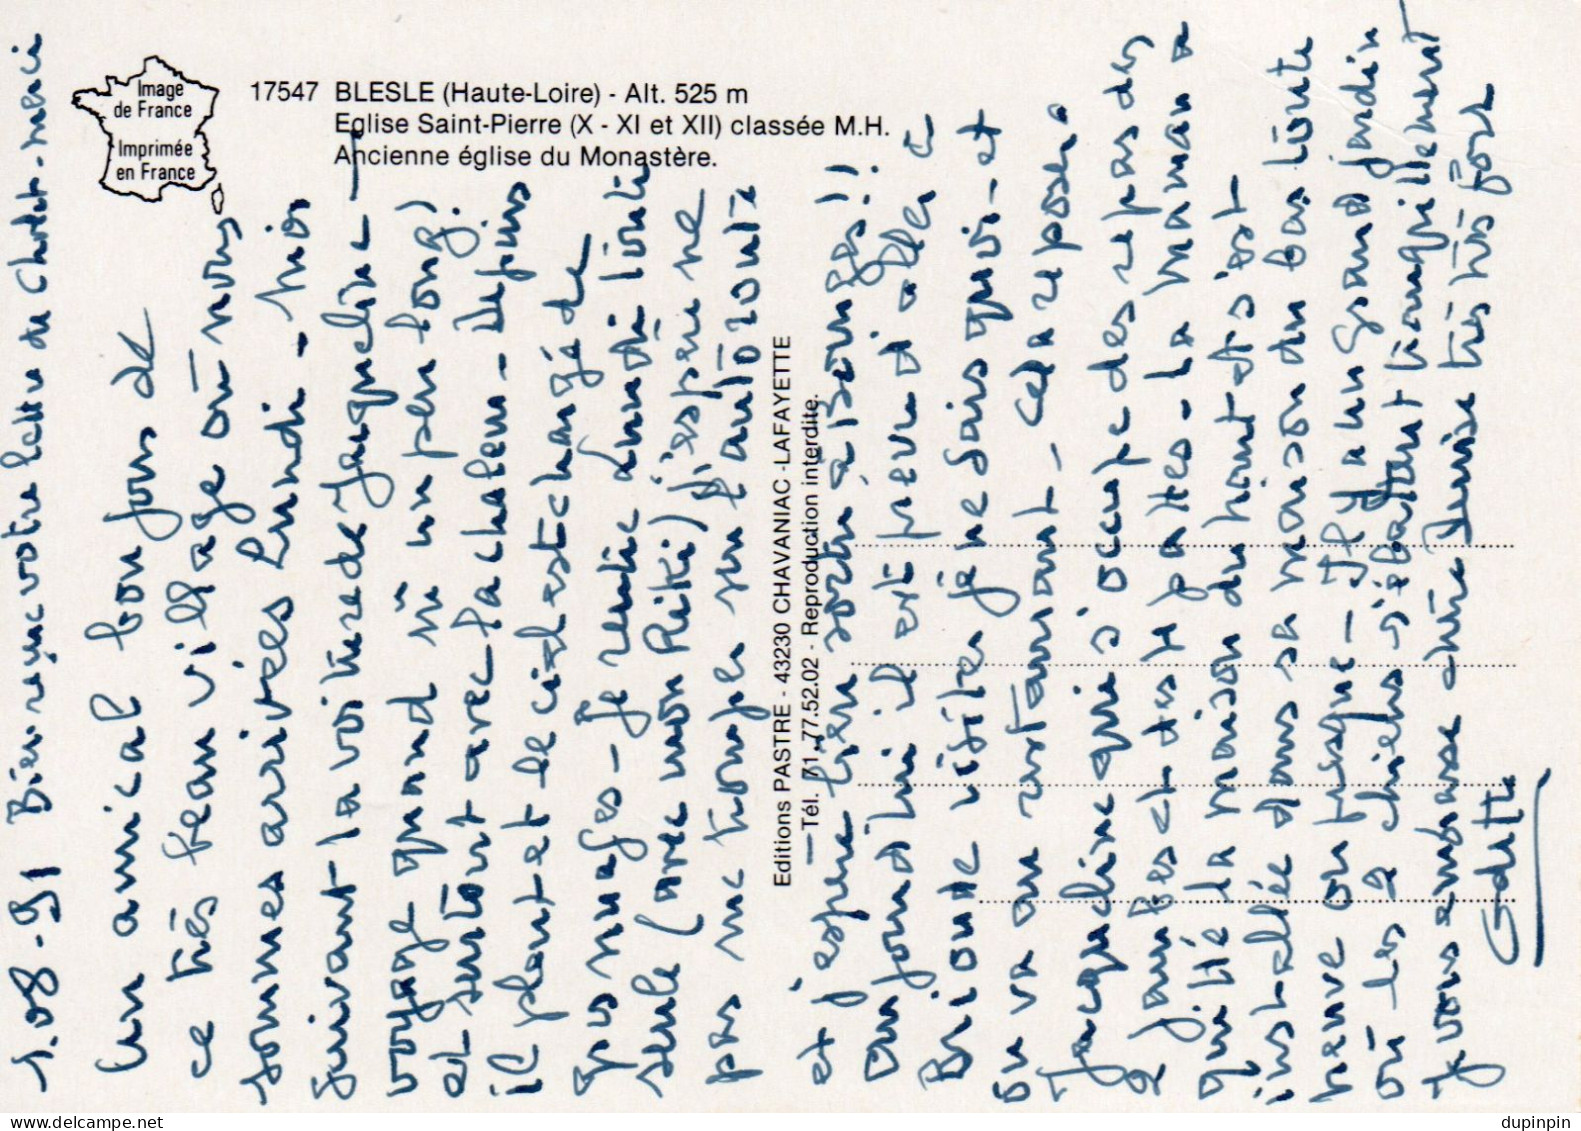 Image
de France
Imprimée
en France
17547 BLESLE (Haute-Loire) - Alt. 525 m
Eglise Saint-Pierre (X - XI et XII) classée M.H.
Ancienne église du Monastère.
Editions PASTRE - 43230 CHAVANIAC-LAFAYETTE
Tél. 71.77.52.02 - Reproduction interdite.
1.08.91 Bien reçue votre lettre du Cholet. merci
Un amical bonjour de
ce très beau village où nous
sommes arrivées Lundi - moi
suivant la voiture de Jacqueline -
voyage quand m un peu long!
et surtout avec la chaleur - depuis
il pleut et le ciel est chargé de
gros nuages - Je rentre Lundi toute
seule (avec mon Kiki) j'espère ne
pas me tromper sur l'autoroute
et j'espère bien sortir à Bourges!!
aujourd'hui il est prévu d'aller à
Brioude visiter je ne sais quoi - et
on va au restaurant - cela repose.
Jacqueline qui s'occupe des repas des
2 jambes et des 4 pattes - La maman a
quitté la maison du haut et s'est
installée dans sa maison du bas toute
neuve ou presque - Il y a un grand jardin
où les 2 chiens s'ébattent tranquillement
Je vous embrasse chère Denise très très fort
Odette
dupinpin